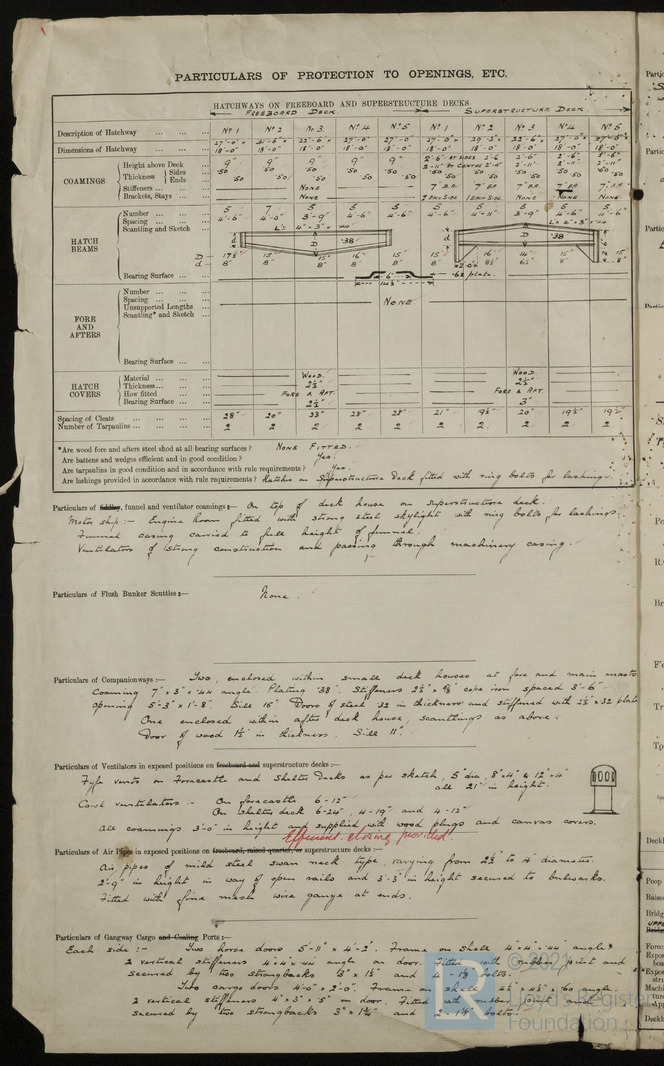 PARTICULARS OF PROTECTION TO OPENINGS, ETC.
HATCHWAYS ON FREEBOARD AND SUPERSTRUCTURE DECKS
FREEBOARD DECK. SUPERSTRUCTURE DECK
Description of Hatchway ... ... ... No 1 No 2 No 3. No 4 No 5 No 1 No 2 No 3 No 4 No 5
Dimensions of Hatchway ... ... ... 27'-0" x 31'-6" x 22'-6" x 27'-0" 27'-0" 27'-0" x 29'-3" x 22'-6" x 27'-0" x 27'-0" x
18'-0" 18'-0" 18'-0" 18'-0" 18'-0" 18'-0" 18'-0" 18'-0" 18'-0" 18'-0"
COAMINGS
Height above Deck ... 9" 9" 9" 9" 9" 2'-6" AT SIDES 2'-6 2'-6" 2'-6" 2'-6"
Thickness Sides ... .50 .50 .50 .50 .50 2'-11" AT CENTRE 2'-11" 2'-11" 2'-11" 2'-11"
Ends ... .50 .50 .50 .50 .50 .50 .50 .50 .50 .50
Stiffeners ... ... ... NONE 7" B.A. 7" BA 7" B.A. 7" B.A. 7" B.A.
Brackets, Stays ... ... NONE 2 EACH SIDE 1 EACH SIDE NONE NONE NONE
HATCH BEAMS
Number ... ... ... 5 7 5 5 5 5 5 5 5 5
Spacing ... ... ... 4'-6" 4'-0" 3'-9" 4'-6" 4'-6" 4'-6" 4'-11" 3'-9" 4'-6" 4'-6"
Scantling and Sketch ... Ls 4" x 3" x .44 Ls 4" x 3" x .44
d D .38 d D .38
D 17½" 15" 15" 16" 15" 15" 16" 14" 15" 15"
d 8" 8" 8" 8" 8" 8" 8½" 6½" 8" 8"
Bearing Surface ... ... .63 plate.
FORE AND AFTERS
Number ... ... ...
Spacing ... ... ... NONE
Unsupported Lengths ...
Scantling* and Sketch ...
Bearing Surface ... ...
HATCH COVERS
Material ... ... ... WOOD. WOOD.
Thickness ... ... ... 2½" 2½"
How fitted ... ... FORE & AFT. FORE & AFT.
Bearing Surface ... ... 2½" 3"
Spacing of Cleats ... ... ... ... 28" 20" 23" 28" 28" 21" 19½" 20" 19½" 19½"
Number of Tarpaulins ... ... ... ... 2 2 2 2 2 2 2 2 2 2
*Are wood fore and afters steel shod at all bearing surfaces? NONE FITTED.
Are battens and wedges efficient and in good condition? Yes.
Are tarpaulins in good condition and in accordance with rule requirements? Yes
Are lashings provided in accordance with rule requirements? Hatches on Superstructure Deck fitted with ring bolts for lashings.
Particulars of fiddley, funnel and ventilator coamings:— On top of deck house on superstructure deck.
Motor ship:— Engine Room fitted with strong steel skylight with ring bolts for lashings.
Funnel casing carried to full height of funnel.
Ventilators of strong construction and passing through machinery casing.
Particulars of Flush Bunker Scuttles:— None.
Particulars of Companionways:— Two, enclosed within small deck houses at fore and main masts
Coaming 7" x 3" x .44 angle. Plating .38". Stiffeners 2½" x ⅝" cope iron spaced 3'-6"
opening 5'-3" x 1'-8". Sill 15" Doors of steel .32 in thickness and stiffened with 2½" x .32 plate
One enclosed within after deck house, scantlings as above.
Door of wood 1½" in thickness. Sill 11".
Particulars of Ventilators in exposed positions on freeboard and superstructure decks:—
Type vents on Forecastle and Shelter Decks as per sketch, 5" dia, 8"x4" & 12"x4"
all 21" in height.
Cowl ventilators:- On forecastle 6-12"
On Shelter deck 6-24", 4-19" and 4-12"
All coamings 3'-0" in height and supplied with wood plugs and canvas covers.
Efficient closing provided
Particulars of Air Pipes in exposed positions on freeboard, raised quarter, or superstructure decks:—
Air pipes of mild steel swan neck type, varying from 2½" to 4" diameter.
2'-9" in height in way of open rails and 3'-3" in height secured to bulwarks.
Fitted with fine mesh wire gauze at ends.
Particulars of Gangway Cargo and Coaling Ports:—
Each side:- Two horse doors 5'-11" x 4'-2". Frame on shell 4" x 4" x .44 angle.
2 vertical stiffeners 4" x 4" x .44 angle on door. Fitted with rubber joint and
secured by two strongbacks 3" x 1½" and 4 - 1⅛" bolts.
Two cargo doors 4'-0" x 2'-0". Frame on shell 4½" x 4½" x .60 angle
2 vertical stiffeners 4" x 3" x .5" on door. Fitted with rubber joint and
secured by two strongbacks 3" x 1¾" and 2 - 1⅛" bolts.
© 2021
Lloyd's Register
Foundation